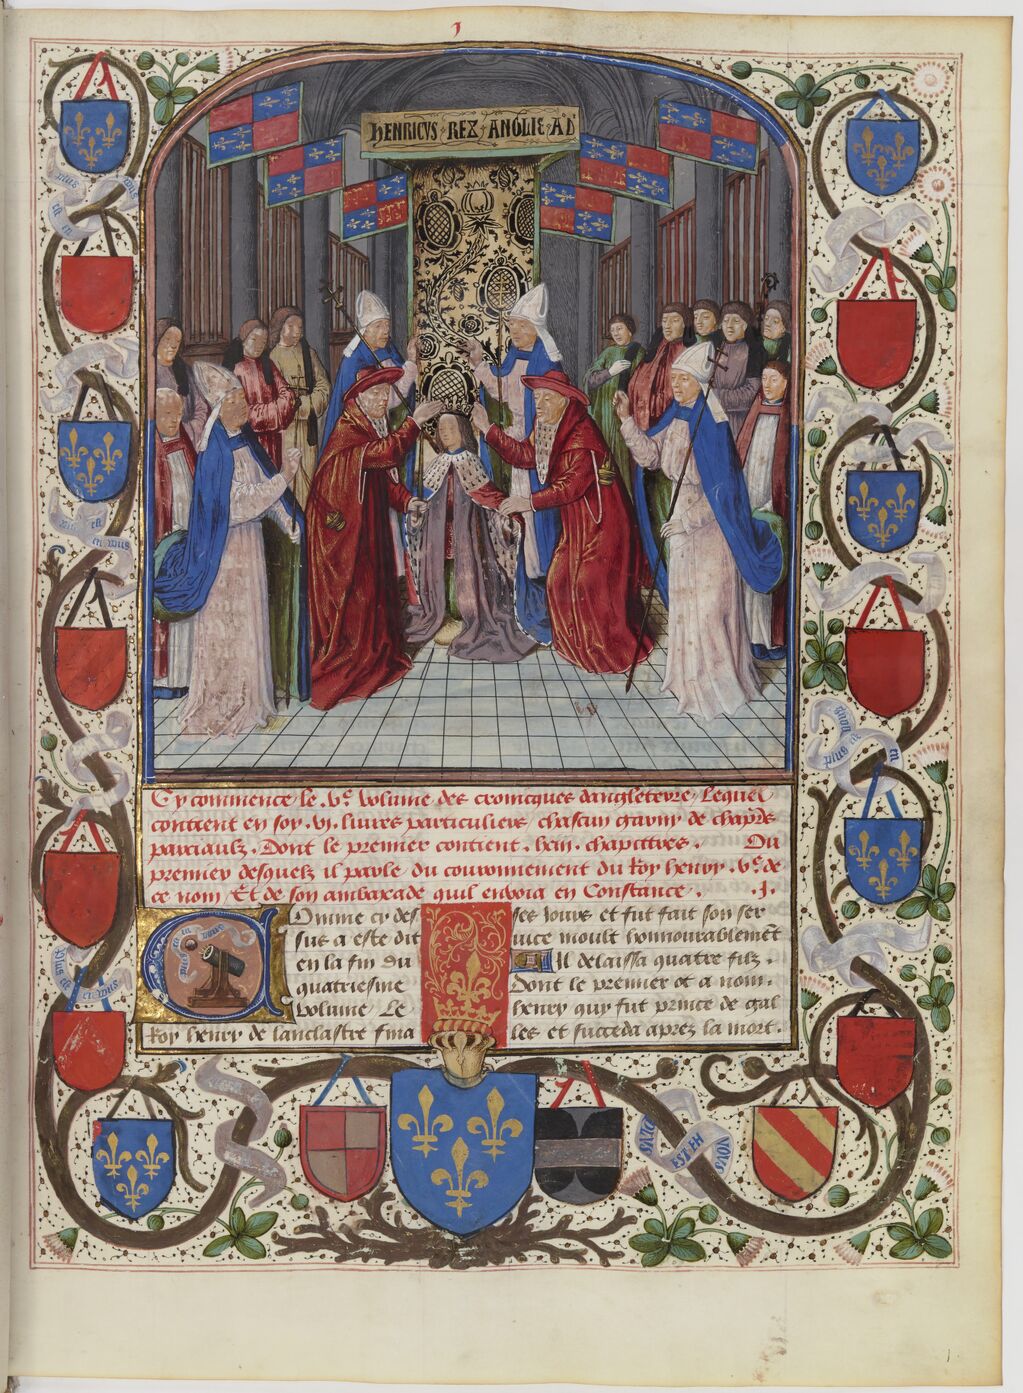 I
HENRICVS · REX · ANGLIE · AD
Cy commence le .Ve. volume des cronicques dangleterre / Lequel
contient en soy .vi. livres particuliers chascun garny de chapitres
parciaulx . Dont le premier contient . chapittres . Du
premier desquelz il parle du couronnement du Roy henry .Ve. de
ce nom / Et de son ambaxade quil envoia en Constance . .I.
Omme cy des
sus a este dit
en la fin du
quatriesme
volume . Le
Roy henry de lanclastre fina
ses jours et fut fait son ser
vice moult honnourablement
Il delaissa quatre filz .
Dont le premier ot a nom .
henry quy fut prince de gal
les et succeda aprez la mort .
plus
est
en vous
plus est
en vous
PLUS
EST EN
VOUS